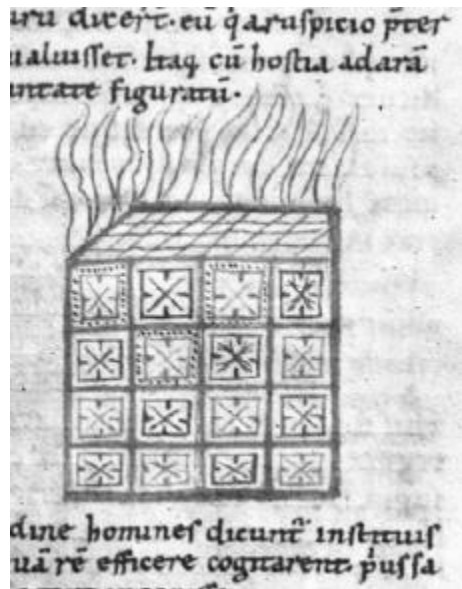 dicer̄t. eū q̄ aruspicio p̄ter
ualuisset. Itaq; cū hostia ad arā
figuratū.
dine homines dicunt̄ instituis
uā rē efficere cogitarent. p̄ussa